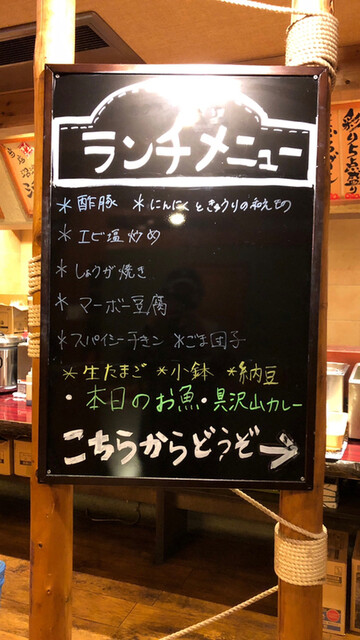 ランチメニュー
*酢豚 *にんにくときゅうりの和えもの
*エビ塩炒め
*しょうが焼き
*マーボー豆腐
*スパイシーチキン *ごま団子
*生たまご *小鉢 *納豆
・本日のお魚・具沢山カレー
こちらからどうぞ→